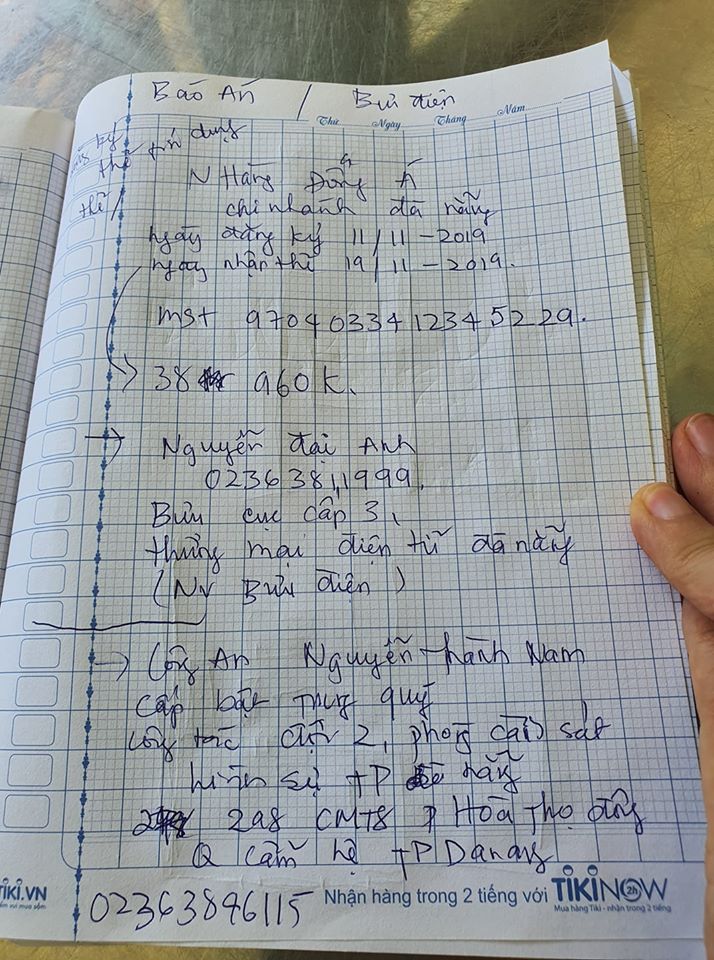 Báo Án / Bưu điện
Thứ Ngày Tháng Năm
đăng ký thẻ tín dụng
thì /
N Hàng Đông Á
chi nhánh đà nẵng
ngày đăng ký 11/11-2019
ngày nhận thẻ 19/11-2019.
mst 9704033412345229.
38 960K.
→ Nguyễn đại Anh
0236 3811999.
Bưu cục cấp 3,
thương mại điện tử đà nẵng
(NV Bưu điện)
→ Công An Nguyễn thành Nam
cấp bậc trung quý
công tác đội 2, phòng cảnh sát
hình sự TP nẵng
298 CMT8 P Hoà Thọ đông
Q cẩm lệ TP Danang
02363896115
TIKI.VN
Nhận hàng trong 2 tiếng với TIKINOW 2h
Mua hàng Tiki - nhận trong 2 tiếng